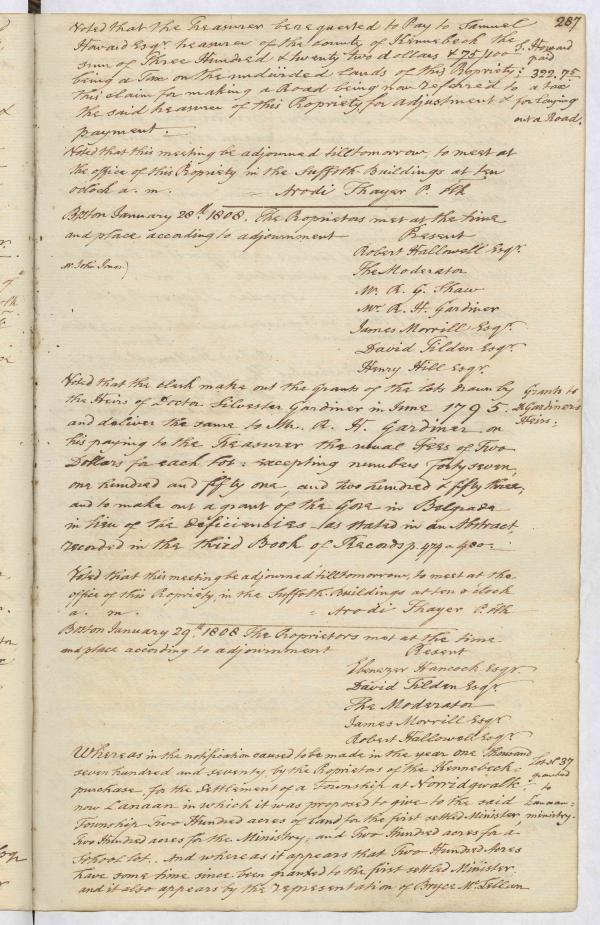 287
Voted that the Treasurer be requested to Pay to Samuel
Howard Esqr. treasurer of the county of Kennebeck the
sum of Three Hundred & twenty two dollars & 75/100
being a Tax on the undivided Lands of this Propriety:
this claim for making a Road being now referred to
the said treasurer of this Propriety, for adjustment &
payment.
S. Howard
paid
322.75
a tax
for laying
out a Road.
Voted that this meeting be adjourned till tomorrow, to meet at
the office of this Propriety in the Suffolk Buildings at ten
oclock a. m. Arodi Thayer P. Clk
Boston January 28th. 1808. The Proprietors met at the time
and place according to adjournment
Present
Mr. John Jones)
Robert Hallowell Esqr.
The Moderator
Mr. R. G. Shaw
Mr. R. H. Gardiner
James Morrill Esqr.
David Tilden Esqr.
Henry Hill Esqr.
Voted that the clerk make out the grants of the lots drawn by
the Heirs of Doctor Silvester Gardiner in June 1795.
and deliver the same to Mr. R. H. Gardiner on
his paying to the Treasurer the usual Fees of Two
Dollars for each lot: excepting numbers forty seven,
one hundred and fifty one, and two hundred & fifty three,
and to make out a grant of the Gore in Belgrade
in lieu of the deficiencies as stated in an Abstract,
recorded in the third Book of Records p. 479 a 480.
Grants to
Dr. Gardiner's
Heirs.
Voted that this meeting be adjourned till tomorrow, to meet at the
office of this Propriety, in the Suffolk Buildings at ten o'clock
a. m. Arodi Thayer P. Clk
Boston January 29th. 1808 The Proprietors met at the time
and place according to adjournment
Present
Ebenezer Hancock Esqr.
David Tilden Esqr.
The Moderator
James Morrill Esqr.
Robert Hallowell Esqr.
Whereas in the notification caused to be made in the year one Thousand
seven hundred and seventy, by the Proprietors of the Kennebeck
purchase, for the Settlement of a Township at Norridgwalk
now Canaan in which it was proposed to give to the said
Township Two Hundred acres of land for the first settled Minister
Two Hundred acres for the Ministry, and Two Hundred acres for a
School lot. And whereas it appears that Two Hundred Acres
have some time since been granted to the first settled Minister
and it also appears by the representation of Bryce McLellan
Lot No. 37
granted
to
Canaan
ministry.